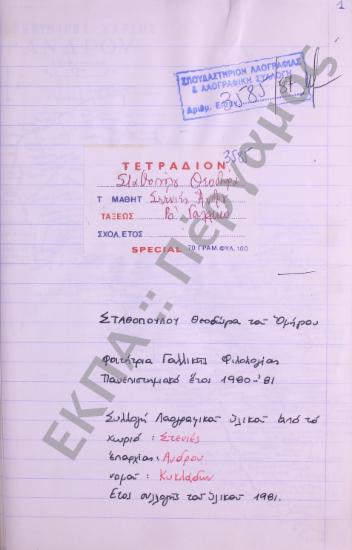 1
ΣΠΟΥΔΑΣΤΗΡΙΟΝ ΛΑΟΓΡΑΦΙΑΣ
& ΛΑΟΓΡΑΦΙΚΗ ΣΥΛΛΟΓΗ
Αριθμ. 3585/81
3585
ΤΕΤΡΑΔΙΟΝ
Τ ΜΑΘΗΤ Στενιές Άνδρου
ΤΑΞΕΩΣ
ΣΧΟΛ. ΕΤΟΣ
SPECIAL 70 ΓΡΑΜ. ΦΥΛ. 100
ΣΤΑΘΟΠΟΥΛΟΥ Θεοδώρα του Ομήρου
Φοιτήτρια Γαλλικής Φιλολογίας
Πανεπιστημιακό έτος 1980-'81
Συλλογή Λαογραφικού υλικού από το
χωριό: Στενιές
επαρχία: Άνδρου
νομού: Κυκλάδων
Έτος συλλογής του υλικού 1981.
ΕΚΠΑ :: Πέργαμος